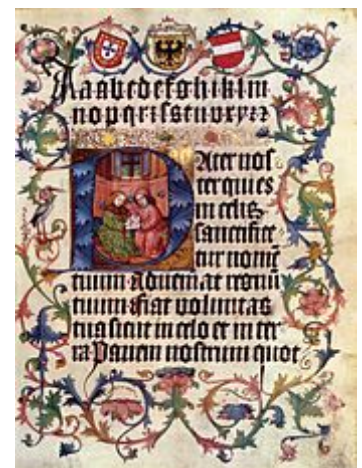 Aaabcdefghiklm
nopqrrſstuvxyzz
PAter noſ
ter qui es
in celis
sanctifice
tur nomē
tuum adueniat regnū
tuum fiat voluntas
tua sicut in celo et in ter
ra Panem nostrum quot